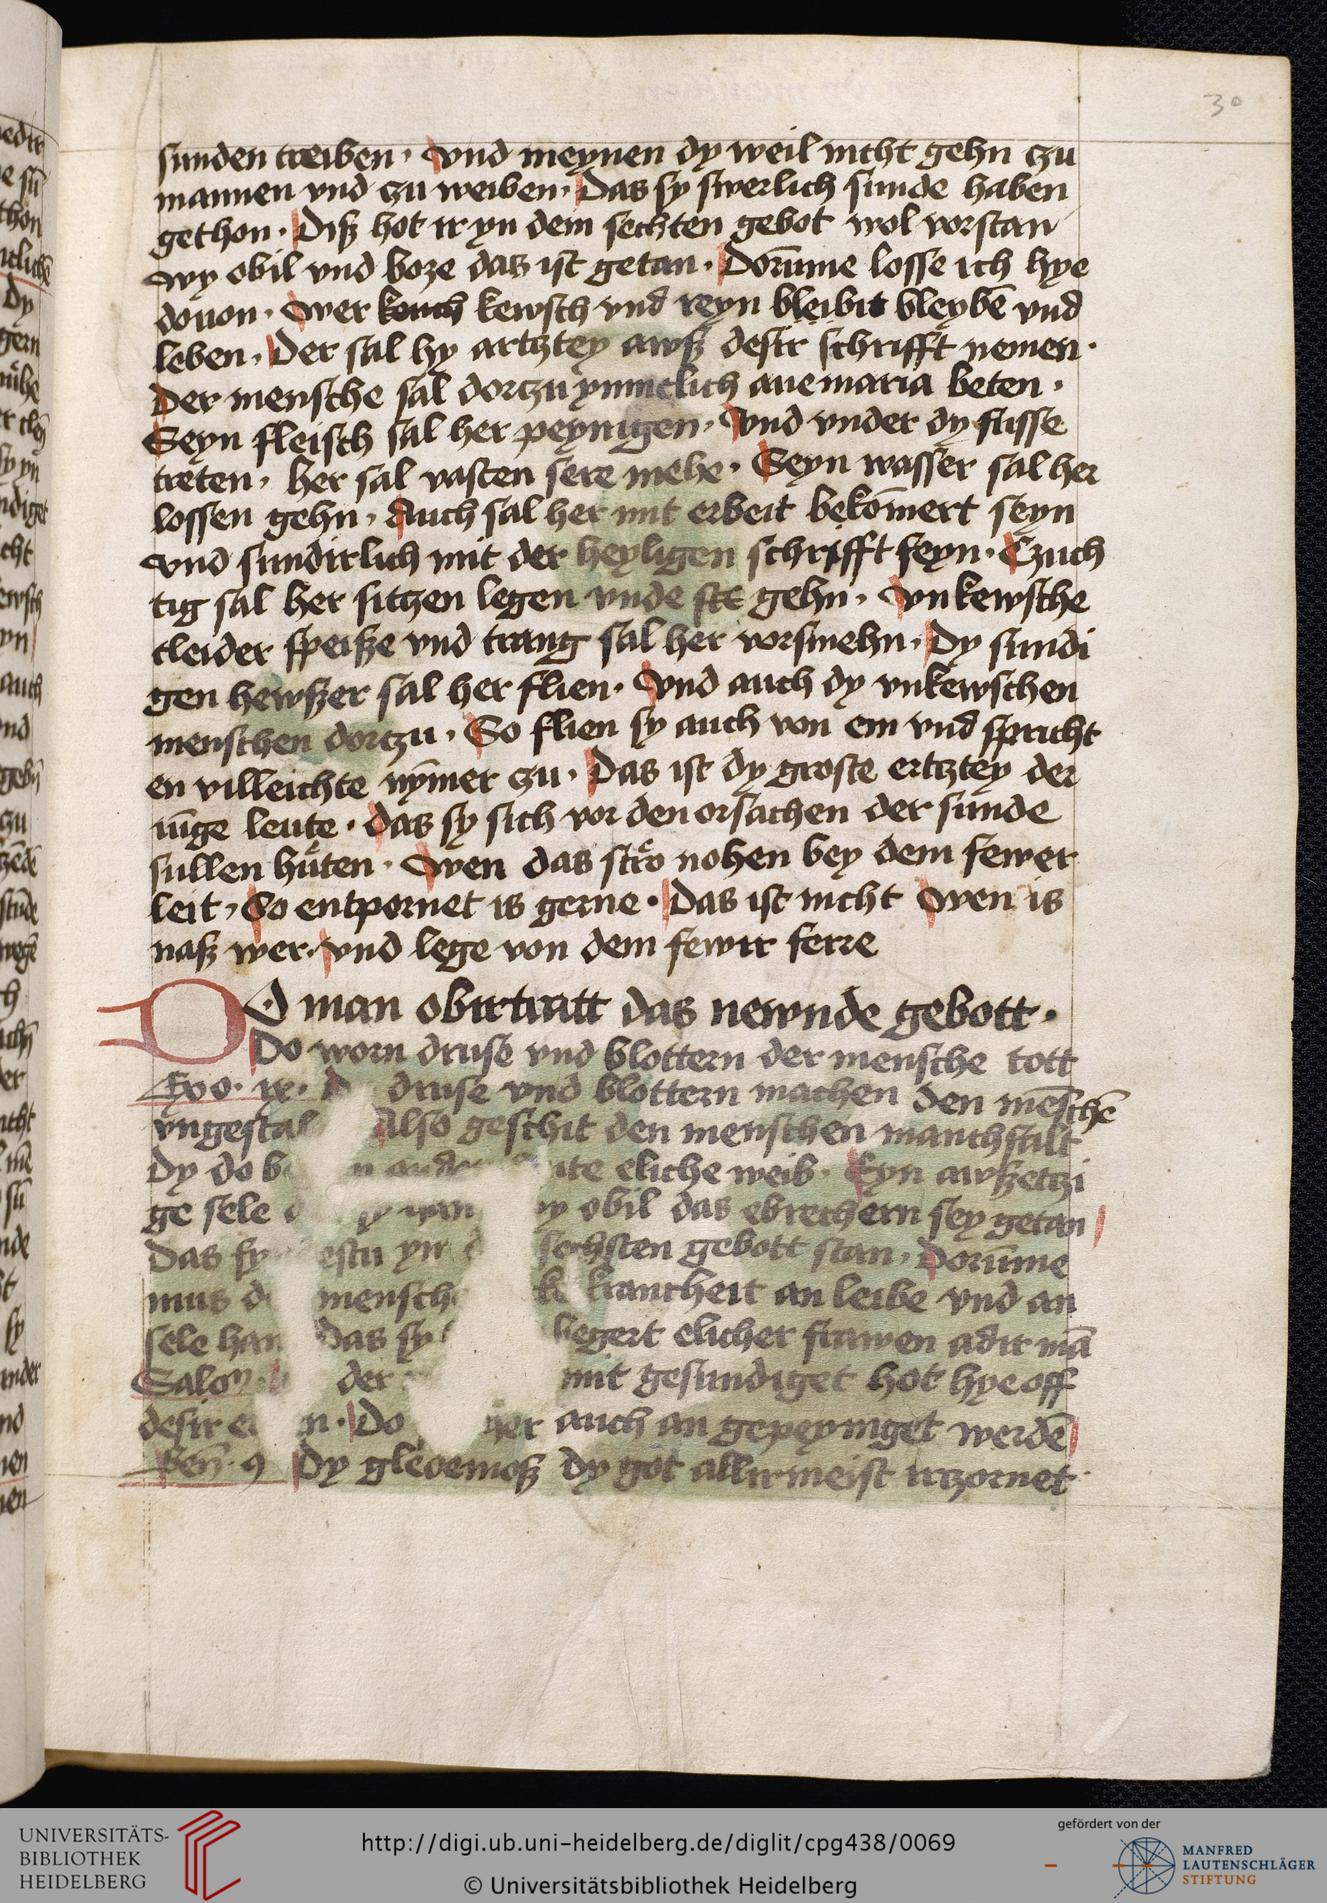 30
sunden treiben · vnd meynen dy weil nicht gehn czu
mannen vnd zu weiben · Das sy swerlich sunde haben
gethon · Diß hot ir yn dem sechten gebot wol vorstan
wy obil vnd boze das ist getan · Dorūme losse ich hye
douon · wer kewsch vnd reyn bleibit bleybē vnd
leben · Der sal hy artztey awß desir schrifft nemen ·
Der mensche sal dorczu ynniclich aue maria beten ·
Seyn fleisch sal her peynigen · Vnd vnder dy fusse
treten · her sal vasten sere mehe · Seyn wasser sal her
lossen gehn · Auch sal her mit erbeit bekōmert seyn
vnd sundirlich mit der heyligen schrifft seyn · Czuch
tig sal her sitzen legen vnde gehn · vnkewsche
cleider speiße vnd trang sal her vorsmehn · Dy sundi
gen hewßer sal her flien · Vnd auch dy vnkewschen
menschen dorczu · So flien sy auch von em vnd spricht
en villeichte nȳmer zu · Das ist dy groste ertztey der
iūge leute · das sy sich vor den orsachen der sunde
sullen hüten · Wen das stro nohen bey dem fewer
leit · So entpornet is gerne · Das ist nicht Wen is
naß wer · vnd lege von dem fewir ferre
DO man obirtratt das newnde gebott ·
Do worn druse vnd blottern der mensche tott
Exo · ix · druse vnd blottern machen den mēschē
vngestal Also geschit den menschen manchstilt
Dy do b eliche weib · Eyn awßetzi
ge sele obil das ebrechern sey getan
Das sechsten gebott stan · Dorūme
mus mensch krancheit an leibe vnd an
sele han das sy begert elicher frawen adir mā
Salo der mit gesundiget hot hye off
desir Do her auch an gepeyniget werdē
Gen · 9 Dy gleoemoß dy got allirmeist irzornet
UNIVERSITÄTS-
BIBLIOTHEK
HEIDELBERG
http://digi.ub.uni-heidelberg.de/diglit/cpg438/0069
© Universitätsbibliothek Heidelberg
gefördert von der
MANFRED
LAUTENSCHLÄGER
STIFTUNG